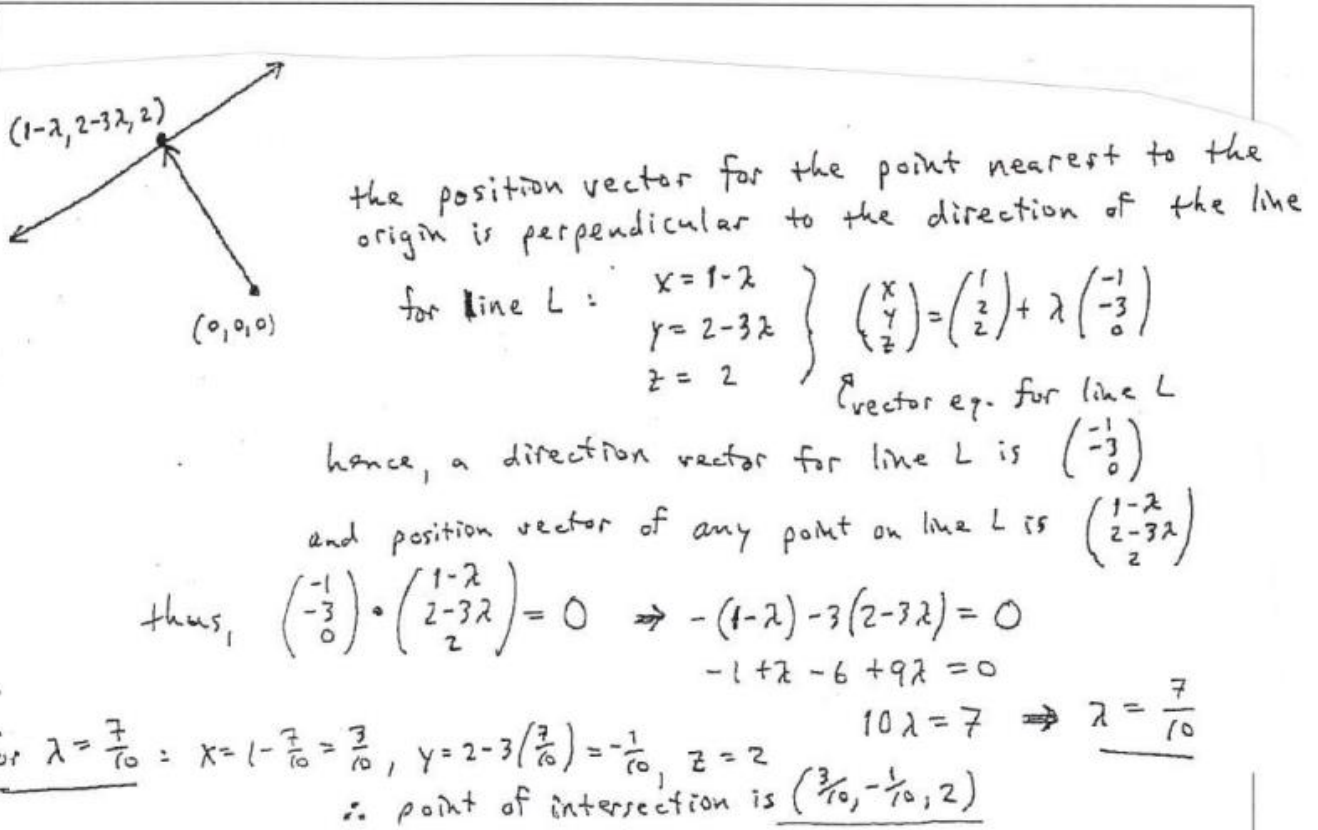 (1-λ, 2-3λ, 2)
(0,0,0)
the position vector for the point nearest to the
origin is perpendicular to the direction of the line
for line L : x = 1-λ
y = 2-3λ
z = 2
} (x y z) = (1 2 2) + λ (-1 -3 0)
vector eq. for line L
hence, a direction vector for line L is (-1 -3 0)
and position vector of any point on line L is (1-λ 2-3λ 2)
thus, (-1 -3 0) • (1-λ 2-3λ 2) = 0 ⇒ -(1-λ) -3(2-3λ) = 0
-1 +λ -6 +9λ = 0
10λ = 7 ⇒ λ = 7/10
λ = 7/10 : x = 1-7/10 = 3/10, y = 2-3(7/10) = -1/10, z = 2
∴ point of intersection is (3/10, -1/10, 2)